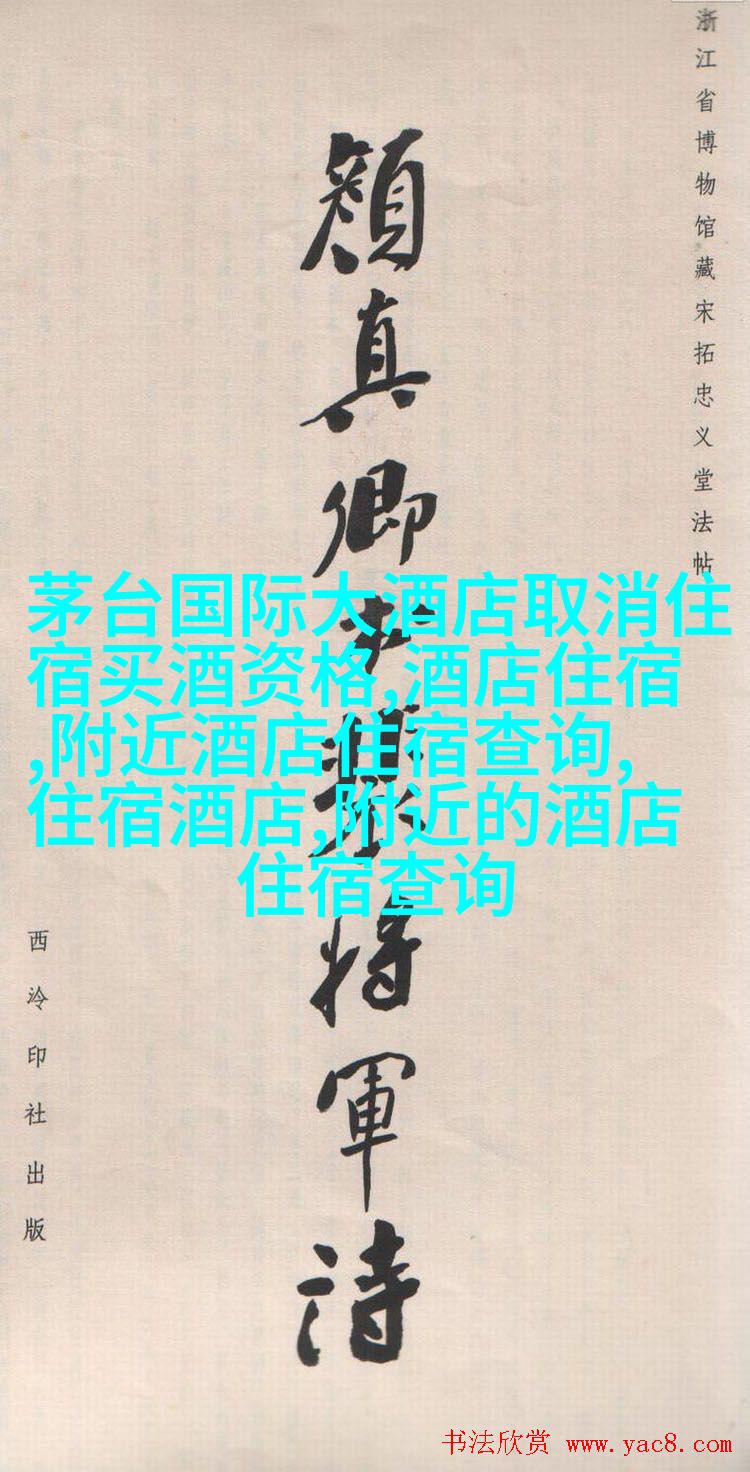 浙江省博物馆藏宋拓忠义堂法帖
顏真卿书裴将軍詩
西泠印社出版
茅台国际大酒店取消住
宿买酒资格,酒店住宿
,附近酒店住宿查询,
住宿酒店,附近的酒店
住宿查询
书法欣赏 www.yac8.com